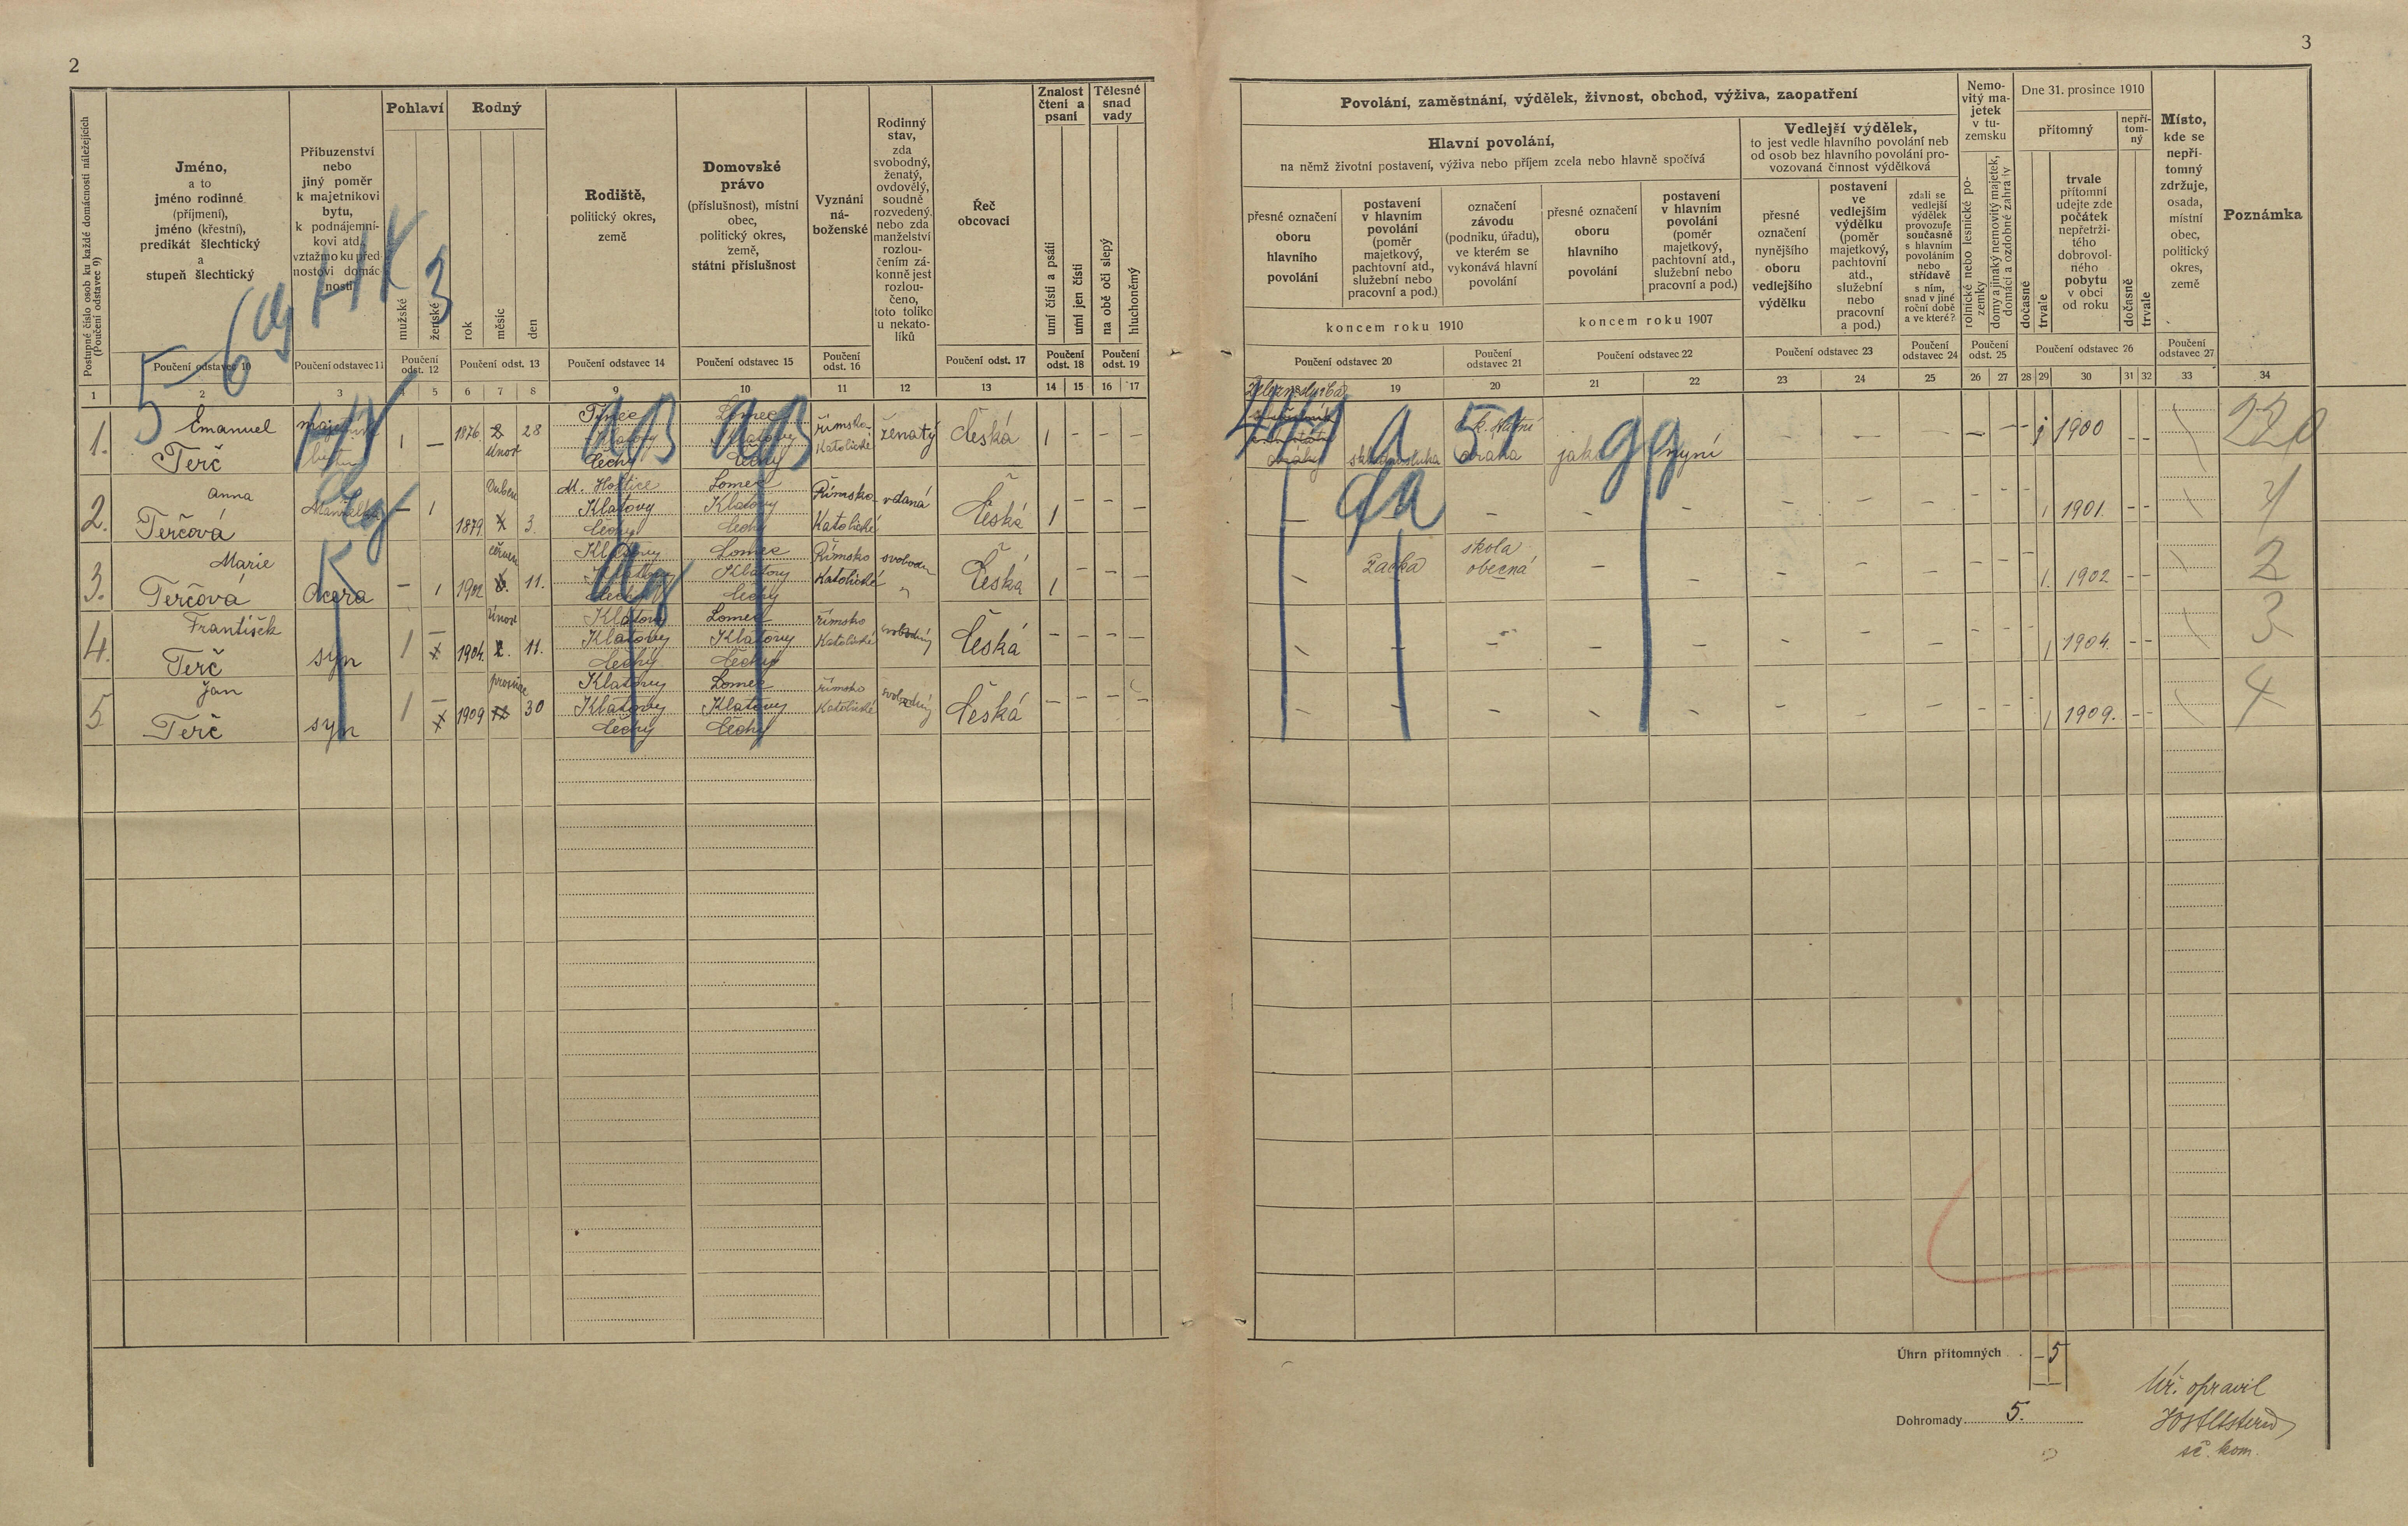 2
Postupné číslo osob ku každé domácnosti náležejících
(Poučení odstavec 9)
Jméno,
a to
jméno rodinné
(příjmení),
jméno (křestní),
predikát šlechtický
a
stupeň šlechtický
Příbuzenství
nebo
jiný poměr
k majetníkovi
bytu,
k podnájemní-
kovi atd.
vztažmo ku před-
nostovi domác-
nosti
Pohlaví
mužské
ženské
Rodný
rok
měsíc
den
Rodiště,
politický okres,
země
Domovské
právo
(příslušnost), místní
obec,
politický okres,
země,
státní příslušnost
Vyznání
ná-
boženské
Rodinný
stav,
zda
svobodný,
ženatý,
ovdovělý,
soudně
rozvedený,
nebo zda
manželství
rozlou-
čením zá-
konně jest
rozlou-
čeno,
toto toliko
u nekato-
líků
Řeč
obcovací
Znalost
čtení a
psaní
umí čísti a psáti
umí jen čísti
Tělesné
snad
vady
na obě oči slepý
hluchoněmý
Poučení odstavec 10
Poučení odstavec 11
Poučení odst. 12
Poučení odst. 13
Poučení odstavec 14
Poučení odstavec 15
Poučení odst. 16
Poučení odst. 17
Poučení odst. 18
Poučení odst. 19
1 2 3 4 5 6 7 8 9 10 11 12 13 14 15 16 17
5 6 HK 3
1. Emanuel
Terč
majetník
bytu
1 — 1876. 2 28
únor
Týnec
Klatovy
Čechy
Lomec
Klatovy
Čechy
římsko-
Katolické
ženatý
Česká
1 - - -
2. Anna
Terčová
Manželka
- 1 1879. 4 3.
Duben
M. Hoštice
Klatovy
Čechy
Lomec
Klatovy
Čechy
Římsko-
Katolické
vdaná
Česká
1 - - -
3. Marie
Terčová
dcera
- 1 1902 6. 11.
červen
Klatovy
Klatovy
Čechy
Lomec
Klatovy
Čechy
Římsko
Katolické
svobodna
"
Česká
1 - - -
4. František
Terč
syn
1 - 1904. 2. 11.
únor
Klatovy
Klatovy
Čechy
Lomec
Klatovy
Čechy
římsko
Katolické
svobodný
Česká
- - - -
5. Jan
Terč
syn
1 - 1909 12 30
prosinec
Klatovy
Klatovy
Čechy
Lomec
Klatovy
Čechy
římsko
Katolické
svobodný
Česká
- - - -
3
Povolání, zaměstnání, výdělek, živnost, obchod, výživa, zaopatření
Hlavní povolání,
na němž životní postavení, výživa nebo příjem zcela nebo hlavně spočívá
přesné označení
oboru
hlavního
povolání
postavení
v hlavním
povolání
(poměr
majetkový,
pachtovní atd.,
služební nebo
pracovní a pod.)
označení
závodu
(podniku, úřadu),
ve kterém se
vykonává hlavní
povolání
koncem roku 1910
přesné označení
oboru
hlavního
povolání
postavení
v hlavním
povolání
(poměr
majetkový,
pachtovní atd.,
služební nebo
pracovní a pod.)
koncem roku 1907
Vedlejší výdělek,
to jest vedle hlavního povolání neb
od osob bez hlavního povolání pro-
vozovaná činnost výdělková
přesné
označení
nynějšího
oboru
vedlejšího
výdělku
postavení
ve
vedlejším
výdělku
(poměr
majetkový,
pachtovní
atd.,
služební
nebo
pracovní
a pod.)
zdali se
vedlejší
výdělek
provozuje
současně
s hlavním
povoláním
nebo
střídavě
s ním,
snad v jiné
roční době
a ve které?
Nemo-
vitý ma-
jetek
v tu-
zemsku
rolnické nebo lesnické po-
zemky
domy a jinaký nemovitý majetek,
domácí a ozdobné zahrady
Dne 31. prosince 1910
přítomný
dočasně
trvale
trvale
přítomní
udejte zde
počátek
nepřetrži-
tého
dobrovol-
ného
pobytu
v obci
od roku
nepří-
tom-
ný
dočasně
trvale
Místo,
kde se
nepří-
tomný
zdržuje,
osada,
místní
obec,
politický
okres,
země
Poznámka
Poučení odstavec 20
Poučení odstavec 21
Poučení odstavec 22
Poučení odstavec 23
Poučení odstavec 24
Poučení odst. 25
Poučení odstavec 26
Poučení odstavec 27
19 20 21 22 23 24 25 26 27 28 29 30 31 32 33 34
441 a 51 gg
dráhy
k. státní
draha
jako nyní
1 1900
220
da
1 1901.
1
Žačka
skola
obecná
1. 1902
2
1 1904.
3
1 1909.
4
Úhrn přítomných - 5
Dohromady 5.
Uř. opravil
sč. kom.